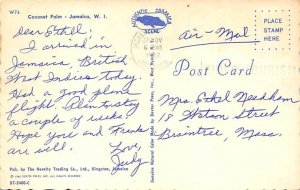 W76 Coconut Palm - Jamaica, W. I.
Dear Ethel,
I arrived in
Jamaica, British
West Indies today.
Had a good plane
flight. Plan to stay
a couple of weeks.
Hope you and Franks
are well.
Love,
Judy
Pub. by The Novelty Trading Co., Ltd., Kingston, Jamaica
DT-2400-C
AUTHENTIC JAMAICA
SCENE
NOV
6 AM
PLACE
STAMP
HERE
Air-Mail
Post Card
Mrs. Ethel Needham
18 Watson Street
Braintree, Mass.